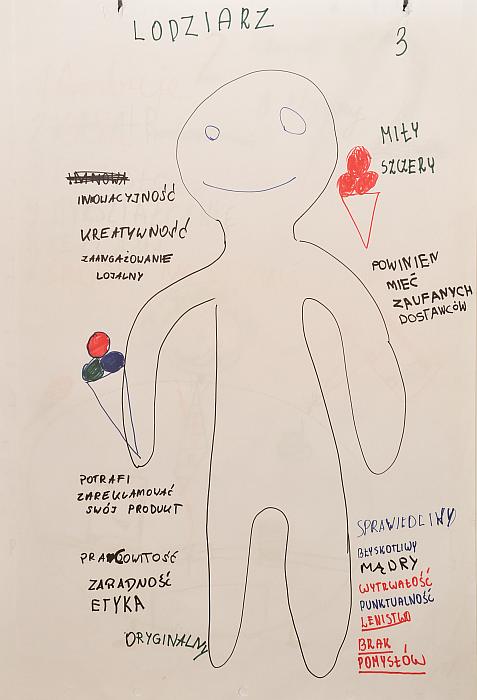 LODZIARZ
3
MIŁY
SZCZERY
INNOWACYJNOŚĆ
KREATYWNOŚĆ
ZAANGAŻOWANIE
LOJALNY
POWINIEN
MIEĆ
ZAUFANYCH
DOSTAWCÓW
POTRAFI
ZAREKLAMOWAĆ
SWÓJ PRODUKT
PRACOWITOŚĆ
ZARADNOŚĆ
ETYKA
ORYGINALNY
SPRAWIEDLIWY
BŁYSKOTLIWY
MĄDRY
WYTRWAŁOŚĆ
PUNKTUALNOŚĆ
LENISTWO
BRAK
POMYSŁÓW